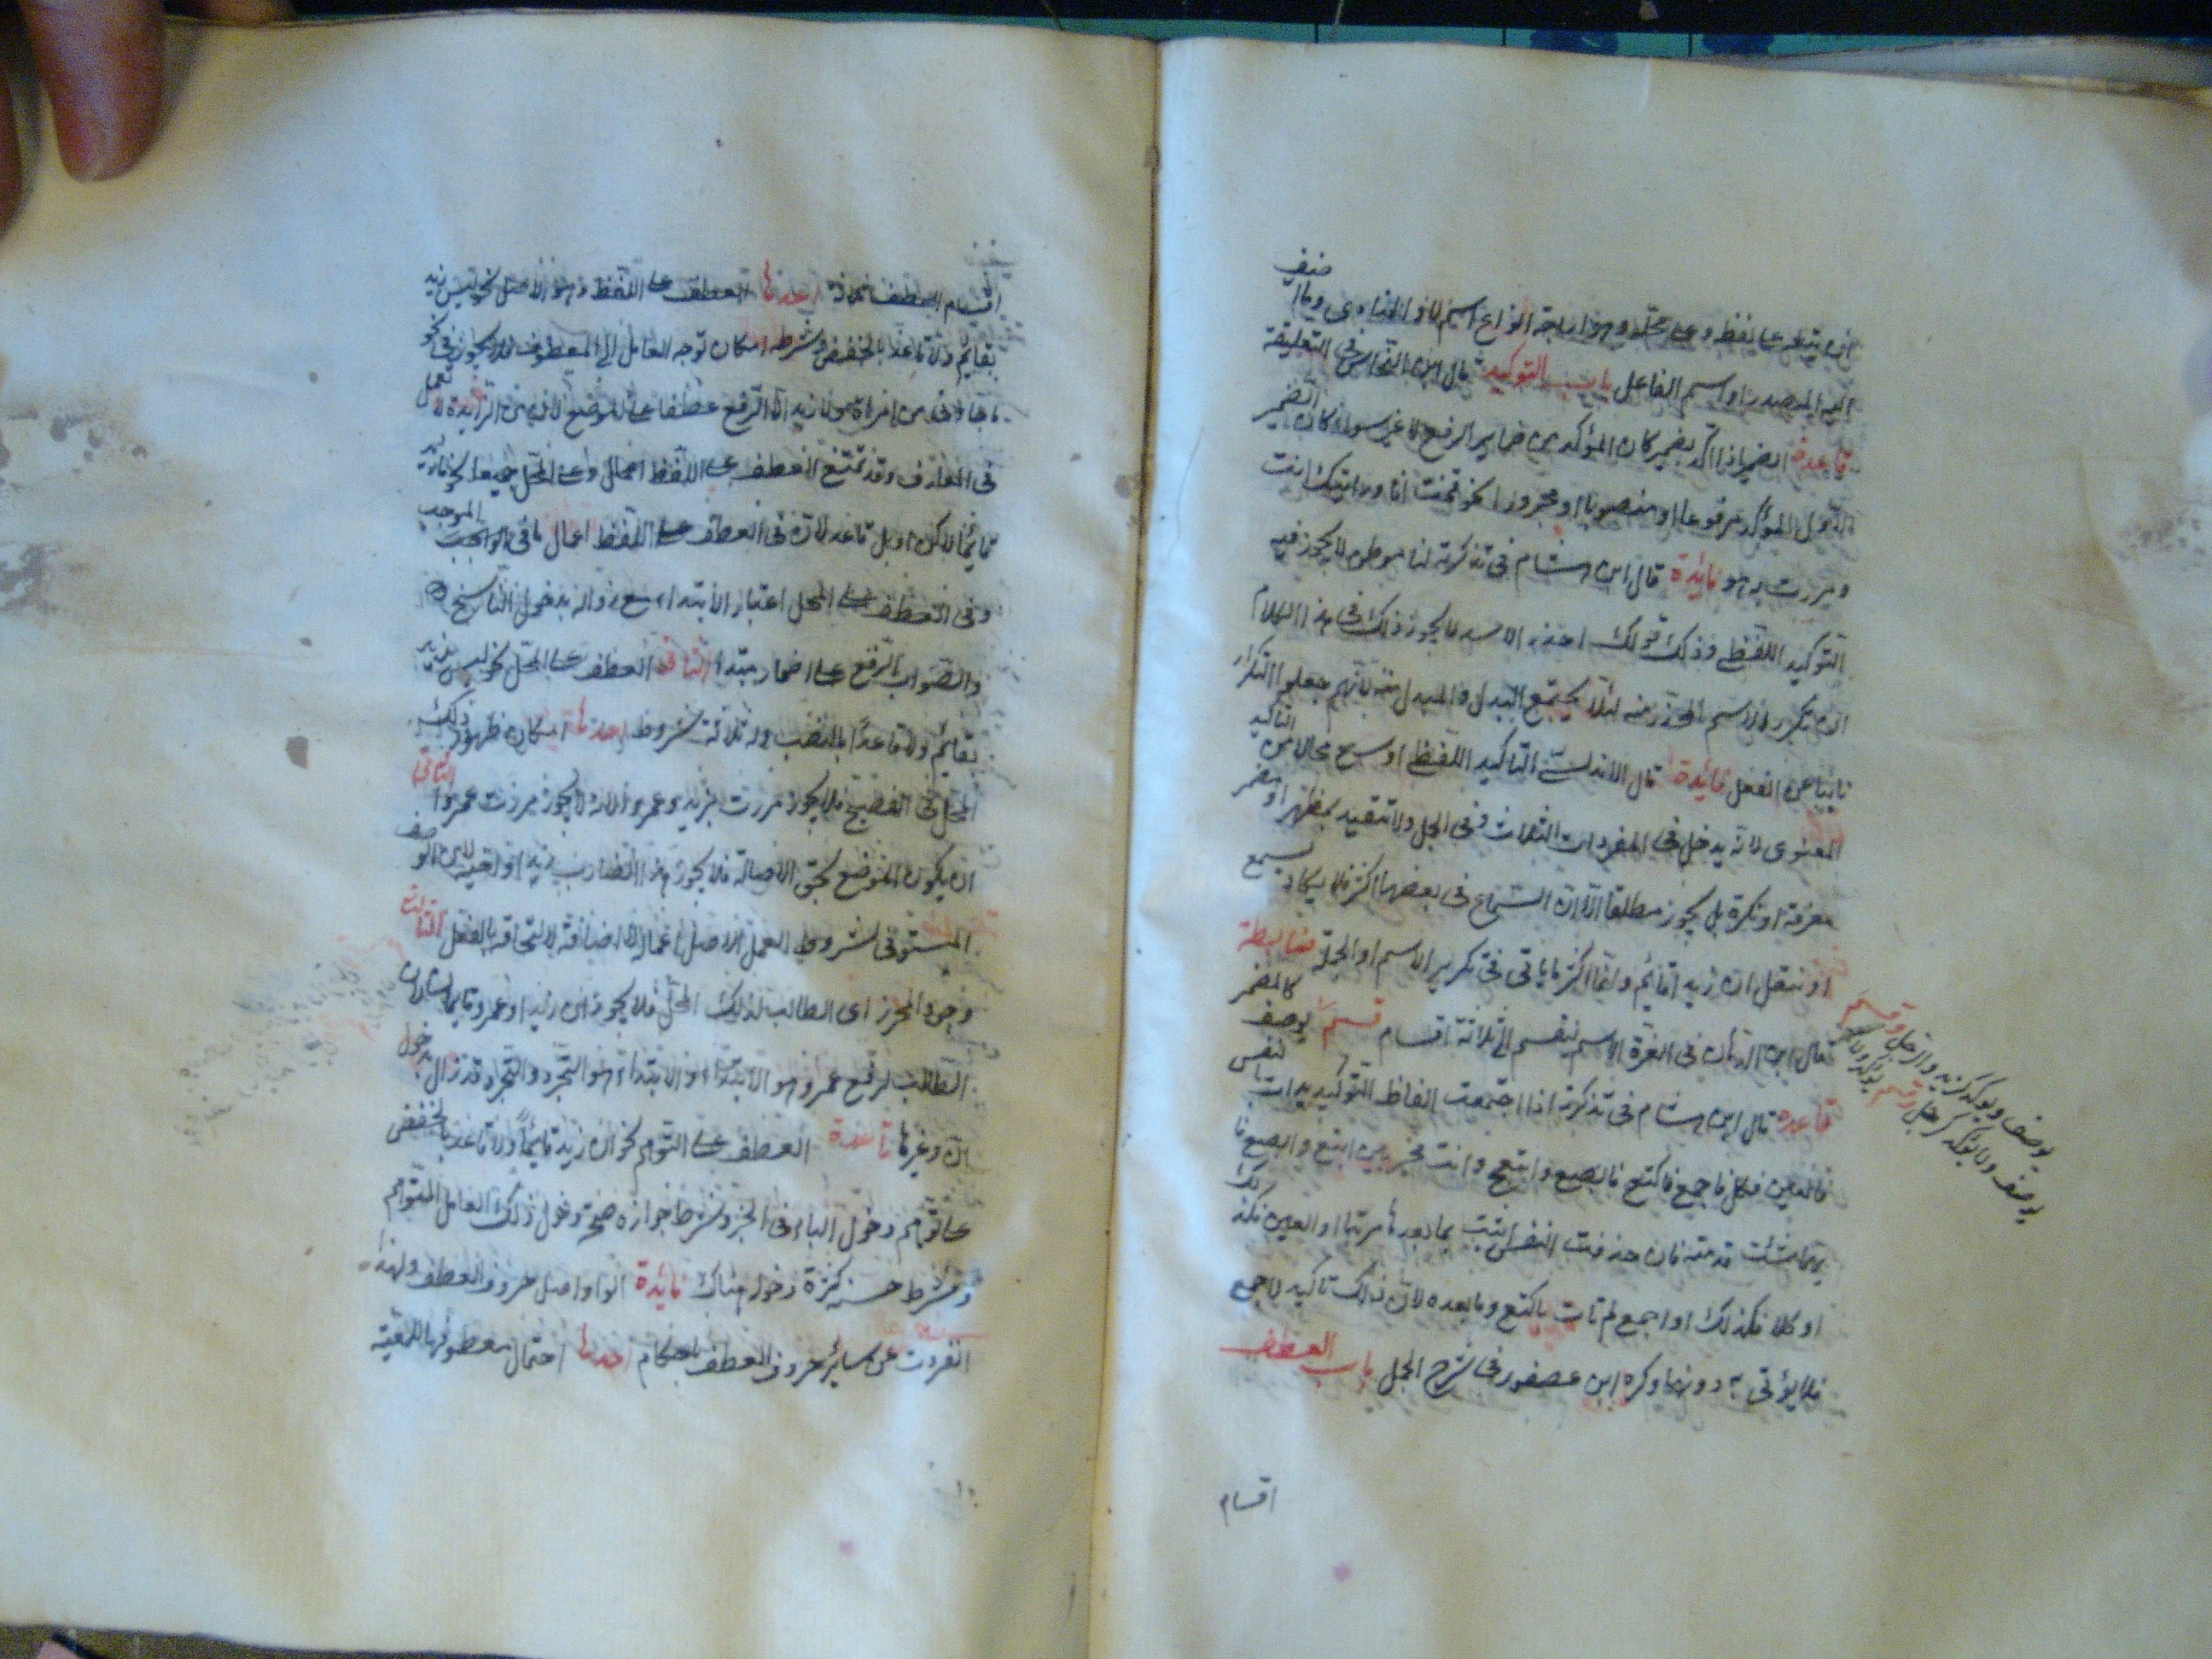 ان يتبع على لفظه وعلى محله وهو اربعة انواع اسم لا والمنادى وما اضيف
اليه المصدر او اسم الفاعل باب التوكيد قال ابن النحاس فى التعليقة
قاعدة الضمير اذا اكد بضمير كان المؤكد من ضماير الرفع لا غير سواء كان الضمير
الاول المؤكد مرفوعا او منصوبا او مجرورا نحو قمت انا ورايتك انت
ومررت به هو فائدة قال ابن هشام فى تذكرته لنا موطن لا يجوز فيه
التوكيد اللفظى وذلك قولك احذر الاسد لا يجوز ذلك فى هذا الكلام
ان يكرر الاسم المحذر منه لئلا يجتمع البدل والمبدل منه لانهم جعلوا التكرار
نايبا عن الفعل فائدة قال الاندلسى التاكيد اللفظى اوسع مجالا من التاكيد
المعنوى لانه يدخل فى المفردات الثلاث وفى الجمل ولا تتقيد بمظهر او مضمر
معرفة او نكرة بل يجوز مطلقا الا ان السماع فى بعضها اكثر فلا يكاد يسمع
او ينقل ان زيد قايم وانما اكثر ما ياتى فى تكرير الاسم او الجملة ضابطة
قال ابن الدهان فى الغرة الاسم ينقسم الى ثلاثة اقسام قسم يوصف كالمضمر
قاعدة قال ابن هشام فى تذكرته اذا اجتمعت الفاظ التوكيد بدات بالنفس
فالعين فكل فاجمع فاكتع فابصع وابتع وانت مخير بين ابتع وابصع فا
يهما شئت قدمته فان حذفت النفس اتيت بما بعدها مرتبا او العين فكذلك
او كلا فكذلك او اجمع لم تات باكتع وما بعده لان ذلك تاكيد لاجمع
فلا يؤتى به دونها وكره ابن عصفور فى شرح الجمل باب العطف
يوصف ويؤكد كزيد والرجل وقسم
يوصف ولا يؤكد كرجل وقسم يؤكد ولا
اقسام
اقسام العطف ثلاثة احدها العطف على اللفظ وهو الاصل نحو ليس زيد
بقايم ولا قاعد بالخفض وشرطه امكان توجه العامل الى المعطوف فلا يجوز فى نحو
ما جاءنى من امراة ولا زيد الا الرفع عطفا على الموضع لان من الزايدة لا تعمل
فى المعارف وقد يمتنع العطف على اللفظ وعلى المحل جميعا نحو ما زيد
قايما لكن او بل قاعد لان فى العطف على اللفظ اعمال ما فى الموجب
وفى العطف على المحل اعتبار الابتداء مع زواله بدخول الناسخ
والصواب الرفع على اضمار مبتدا الثانى العطف على المحل نحو ليس زيد
بقايم ولا قاعدا بالنصب وله ثلاثة شروط احدها امكان ظهور ذلك
المحل فى الفصيح فلا يجوز مررت بزيد وعمروا لانه لا يجوز مررت عمروا الثانى
ان يكون الموضع بحق الاصالة فلا يجوز هذا الضارب زيد او اخيه لان الوصف
المستوفى لشروط العمل الاصل اعماله لا اضافته لالتحاقه بالفعل الثالث
وجود المحرز اى الطالب لذلك المحل فلا يجوز ان زيد او عمرو قايمان لان
الطالب لرفع عمرو هو الابتداء والابتداء هو التجرد والتجرد قد زال بدخول
ان وغيرها قاعدة العطف على التوهم نحو ان زيد قايما ولا قاعد بالخفض
على توهم دخول الباء فى الخبر وشرط جوازه صحة دخول ذلك العامل المتوهم
وشرط حسنه كثرة دخوله هناك فائدة الواو اصل حروف العطف ولهذا
انفردت عن ساير حروف العطف باحكام احدها احتمال معطوفها للمعية